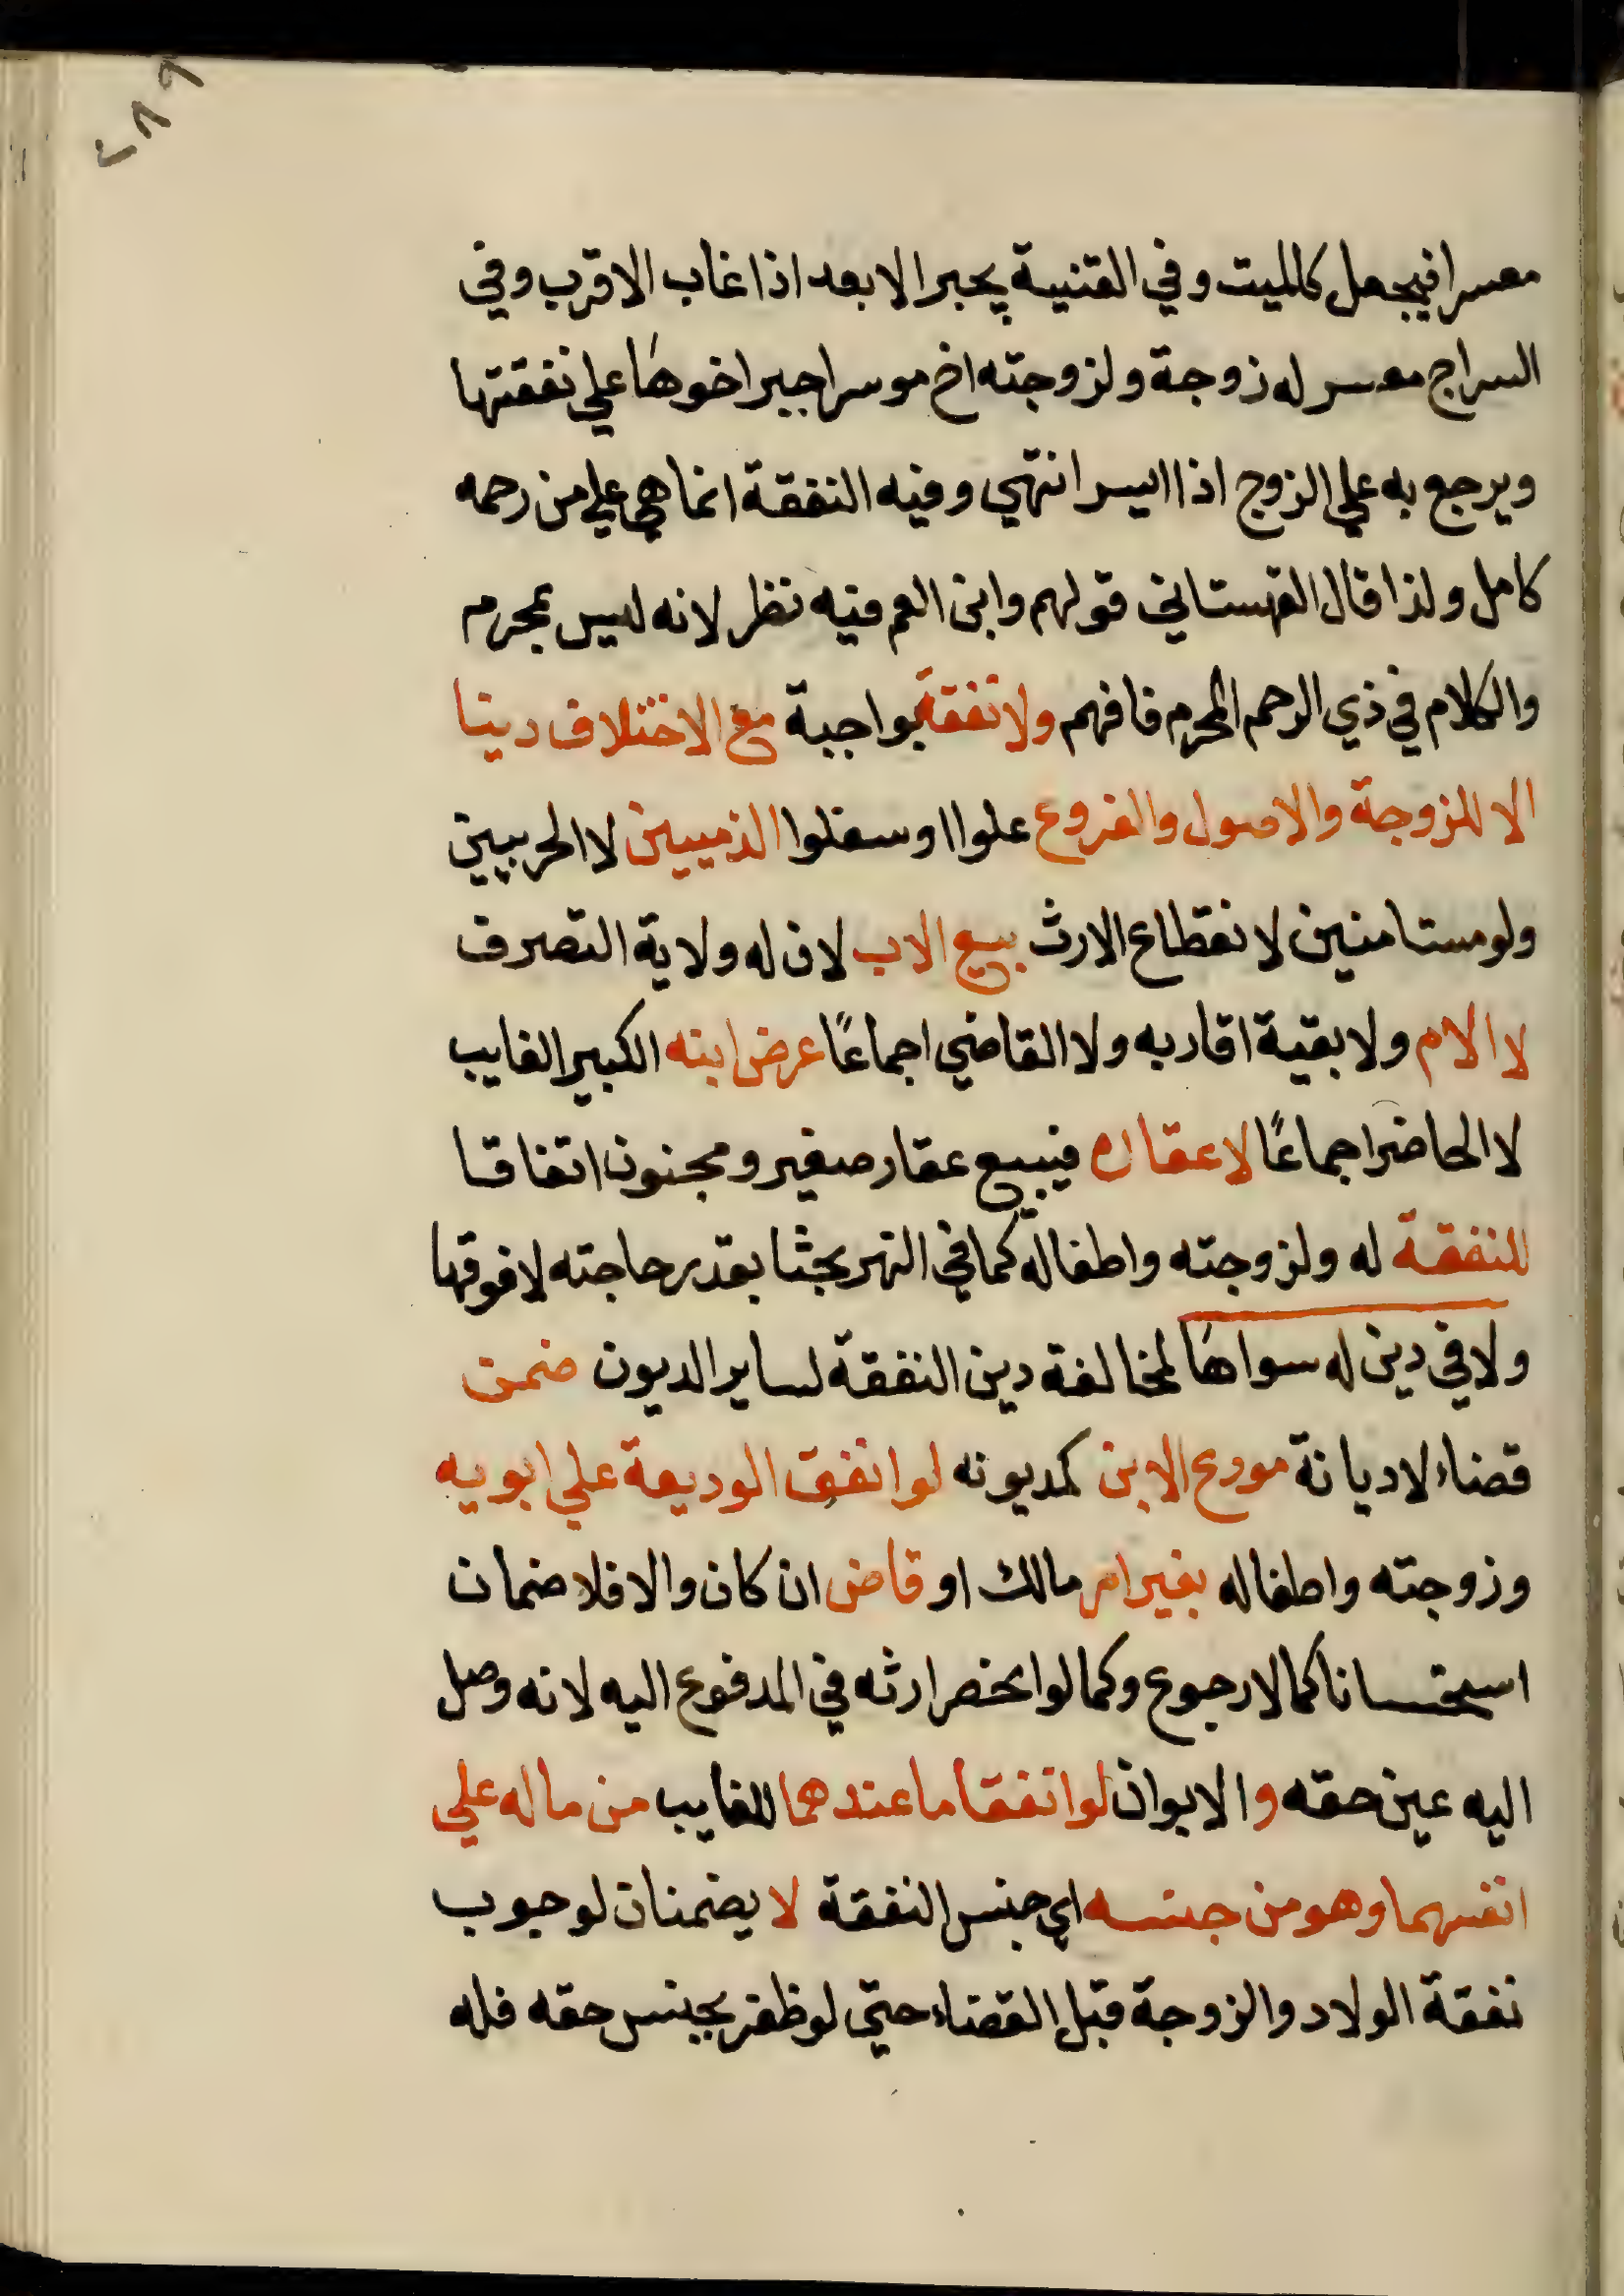 ٢٨٩
معسرا فيجعل كالميت وفي القنية يجبر الابعد اذا غاب الاقرب وفي
السراج معسر له زوجة ولزوجته اخ موسر اجبر اخوها علي نفقتها
ويرجع به علي الزوج اذا ايسر انتهي وفيه النفقة انما هي علي من رحمه
كامل ولذا قال القهستاني قولهم وابن العم فيه نظر لانه ليس بمحرم
والكلام في ذي الرحم المحرم فافهم ولا نفقة بواجبة مع الاختلاف دينا
الا للزوجة والاصول والفروع علوا او سفلوا الذميين لا الحربيين
ولو مستامنين لانقطاع الارث بيع الاب لان له ولاية التصرف
لا الام ولا بقية اقاربه ولا القاضي اجماعًا عرض ابنه الكبير الغايب
لا الحاضر اجماعًا لا عقاره فيبيع عقار صغير ومجنون اتفاقا
للنفقة له ولزوجته واطفاله كما في النهر بحثا بقدر حاجته لا فوقها
ولا في دين له سواها لمخالفة دين النفقة لساير الديون ضمن
قضاء لا ديانة مودع الابن كمديونه لو انفق الوديعة علي ابويه
وزوجته واطفاله بغير امر مالك او قاض ان كان والا فلا ضمان
استحسانا كما لا رجوع وكما لو انحصر ارثه في المدفوع اليه لانه وصل
اليه عين حقه والابوان لو انفقا ما عندهما للغايب من ماله علي
انفسهما وهو من جنسه اي جنس النفقة لا يضمنان لوجوب
نفقة الولاد والزوجة قبل القضاء حتي لو ظفر بجنس حقه فله